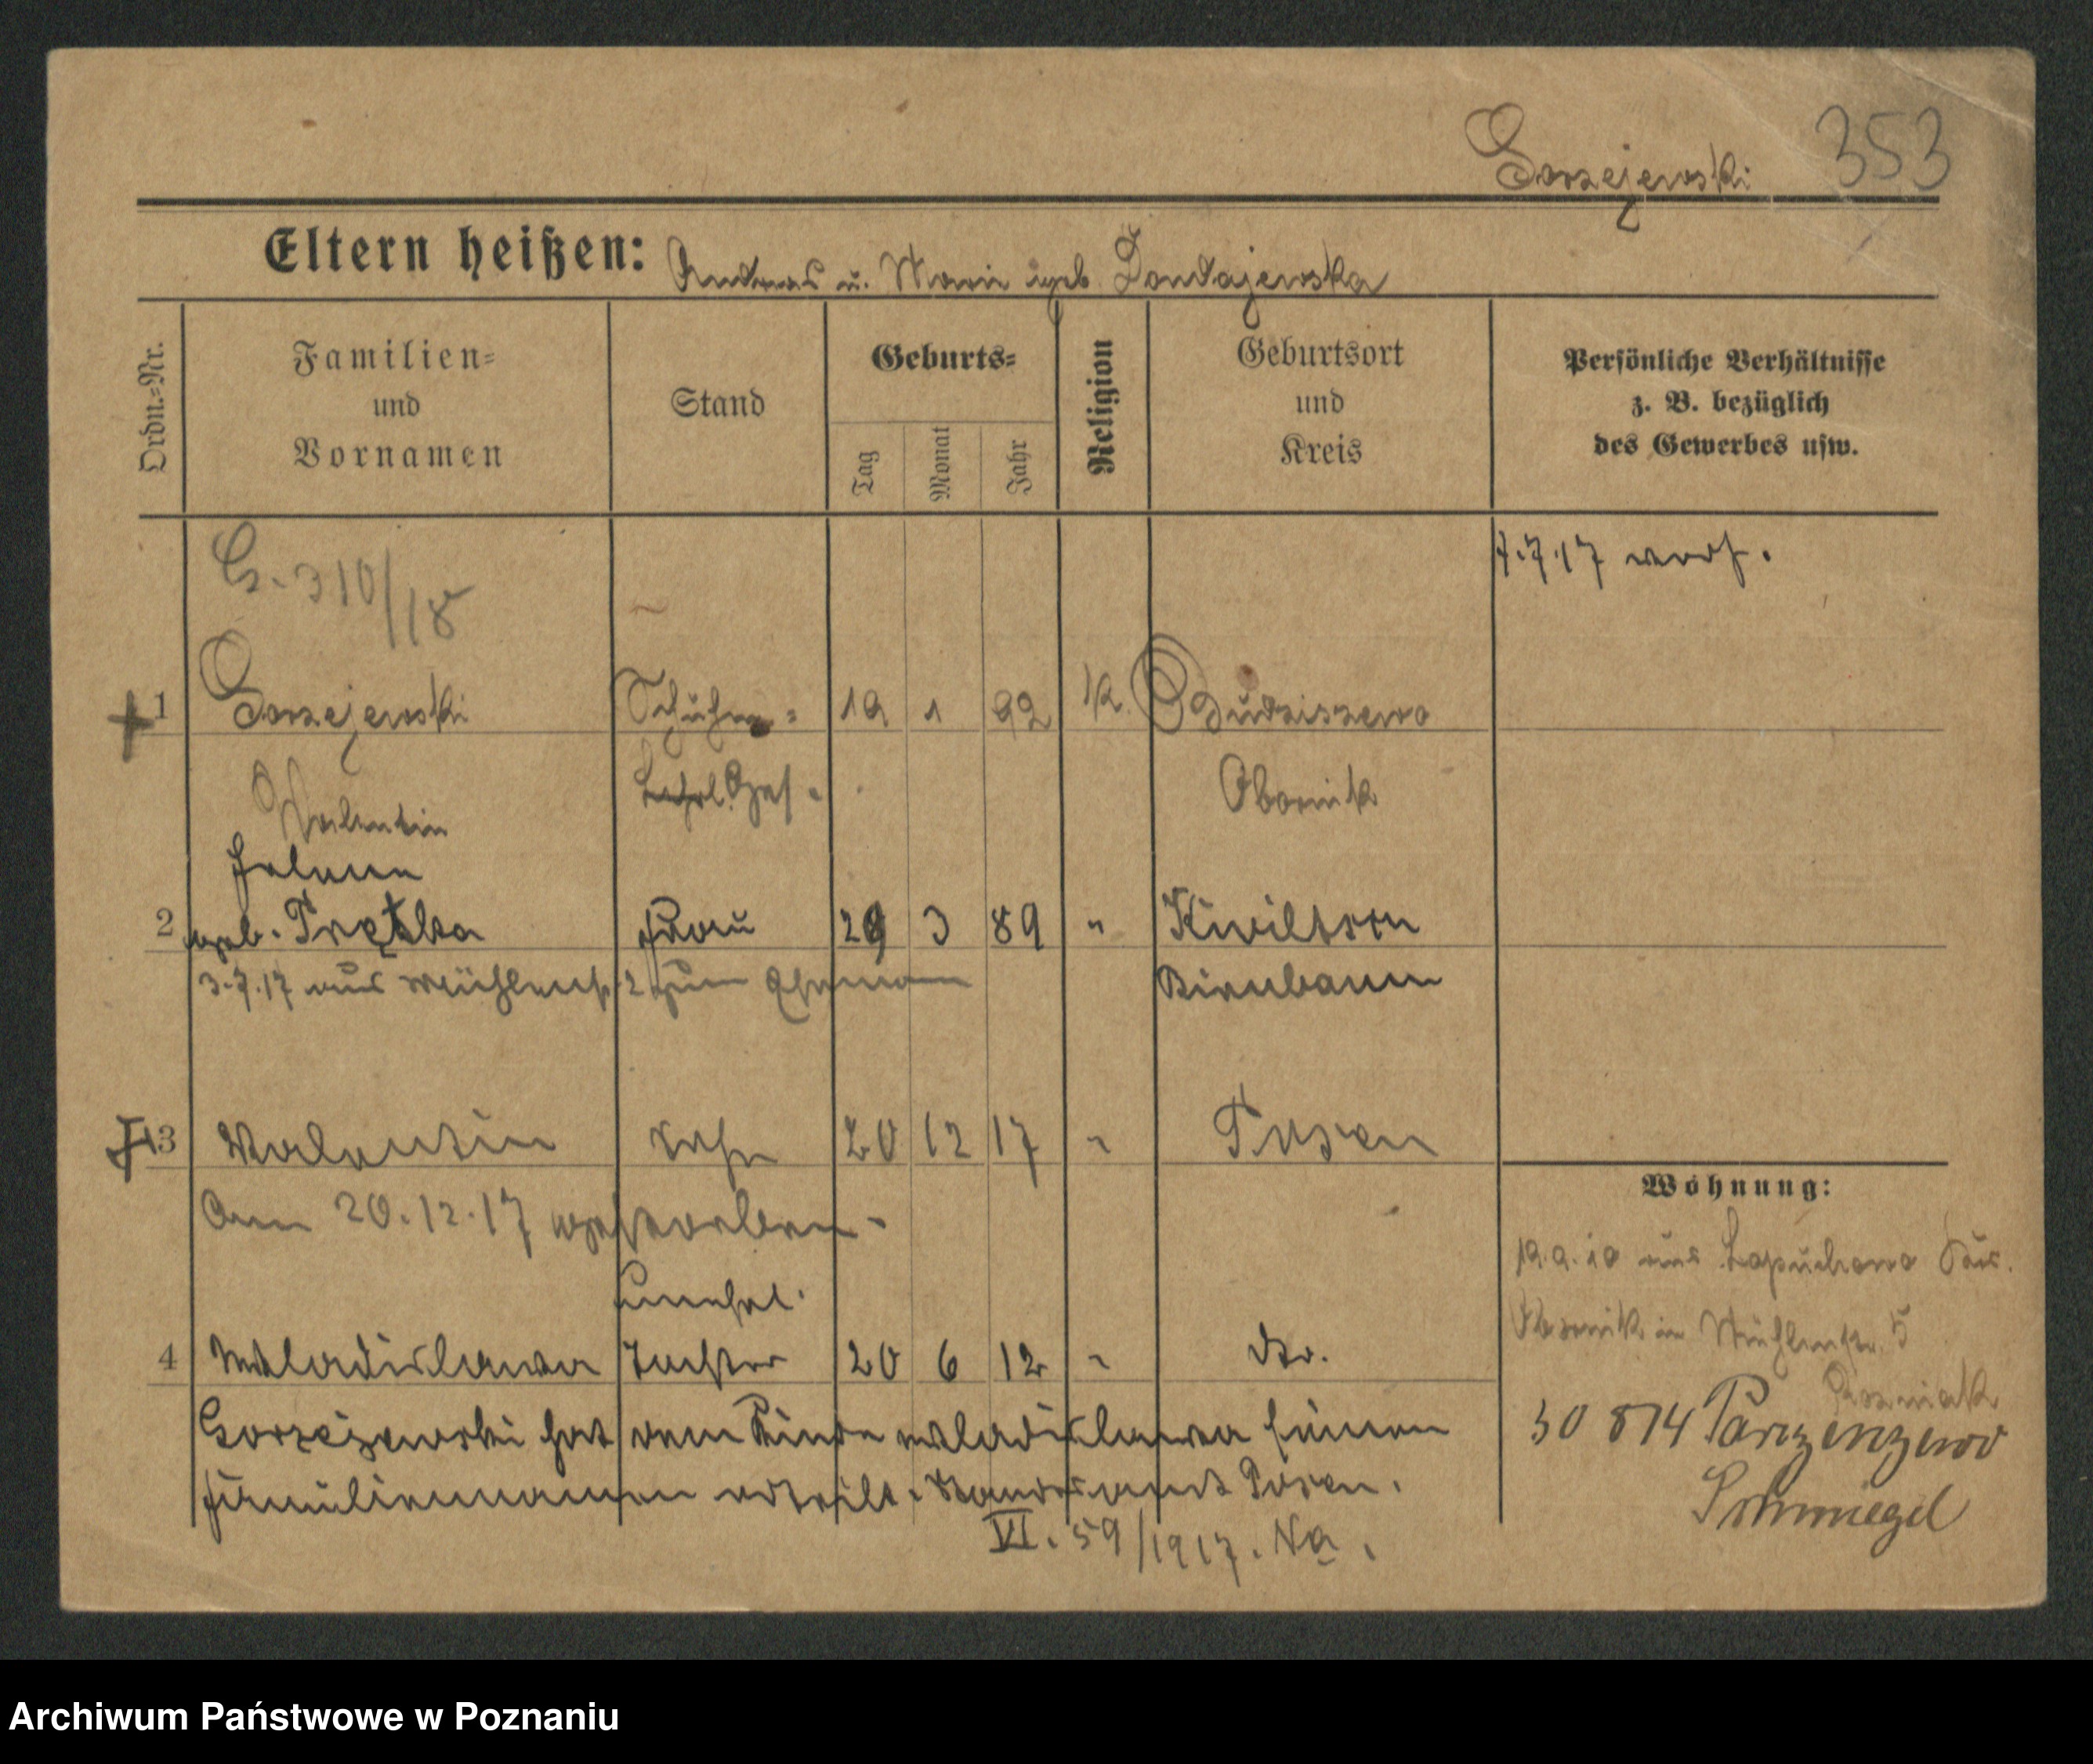 Gorzejewski 353
Eltern heißen: Andreas u. Marie geb. Dondajewska
Ordn.=Nr.
Familien=
und
Vornamen
Stand
Geburts=
Tag
Monat
Jahr
Religion
Geburtsort
und
Kreis
Persönliche Verhältnisse
z. B. bezüglich
des Gewerbes usw.
G. 310/18
7.7.17 verh.
1 Gorzejewski Schuhm= 19 1 92 K. Budziszewo
Valentin Lehrl. Ges. Obornik
Helene
2 geb. Frau 29 3 89 " Kwiltsch
3.7.17 aus Mühlenstr. 2 zum Ehemann Birnbaum
3 Valentin Sohn 20 12 17 " Posen
Am 20.12.17 gestorben.
unehel.
4 Wladislawa Tochter 20 6 12 " do.
Gorzejewski hat dem Kinde Wladislawa seinen
Familiennamen erteilt. Standesamt Posen.
VI. 59/1917. Na.
Wohnung:
19.9.10 aus Lapuchowo Krs.
Obornik in Mühlenstr. 5
Rozmiak
30 8 14 Parzenzewo
Schmiegel
Archiwum Państwowe w Poznaniu